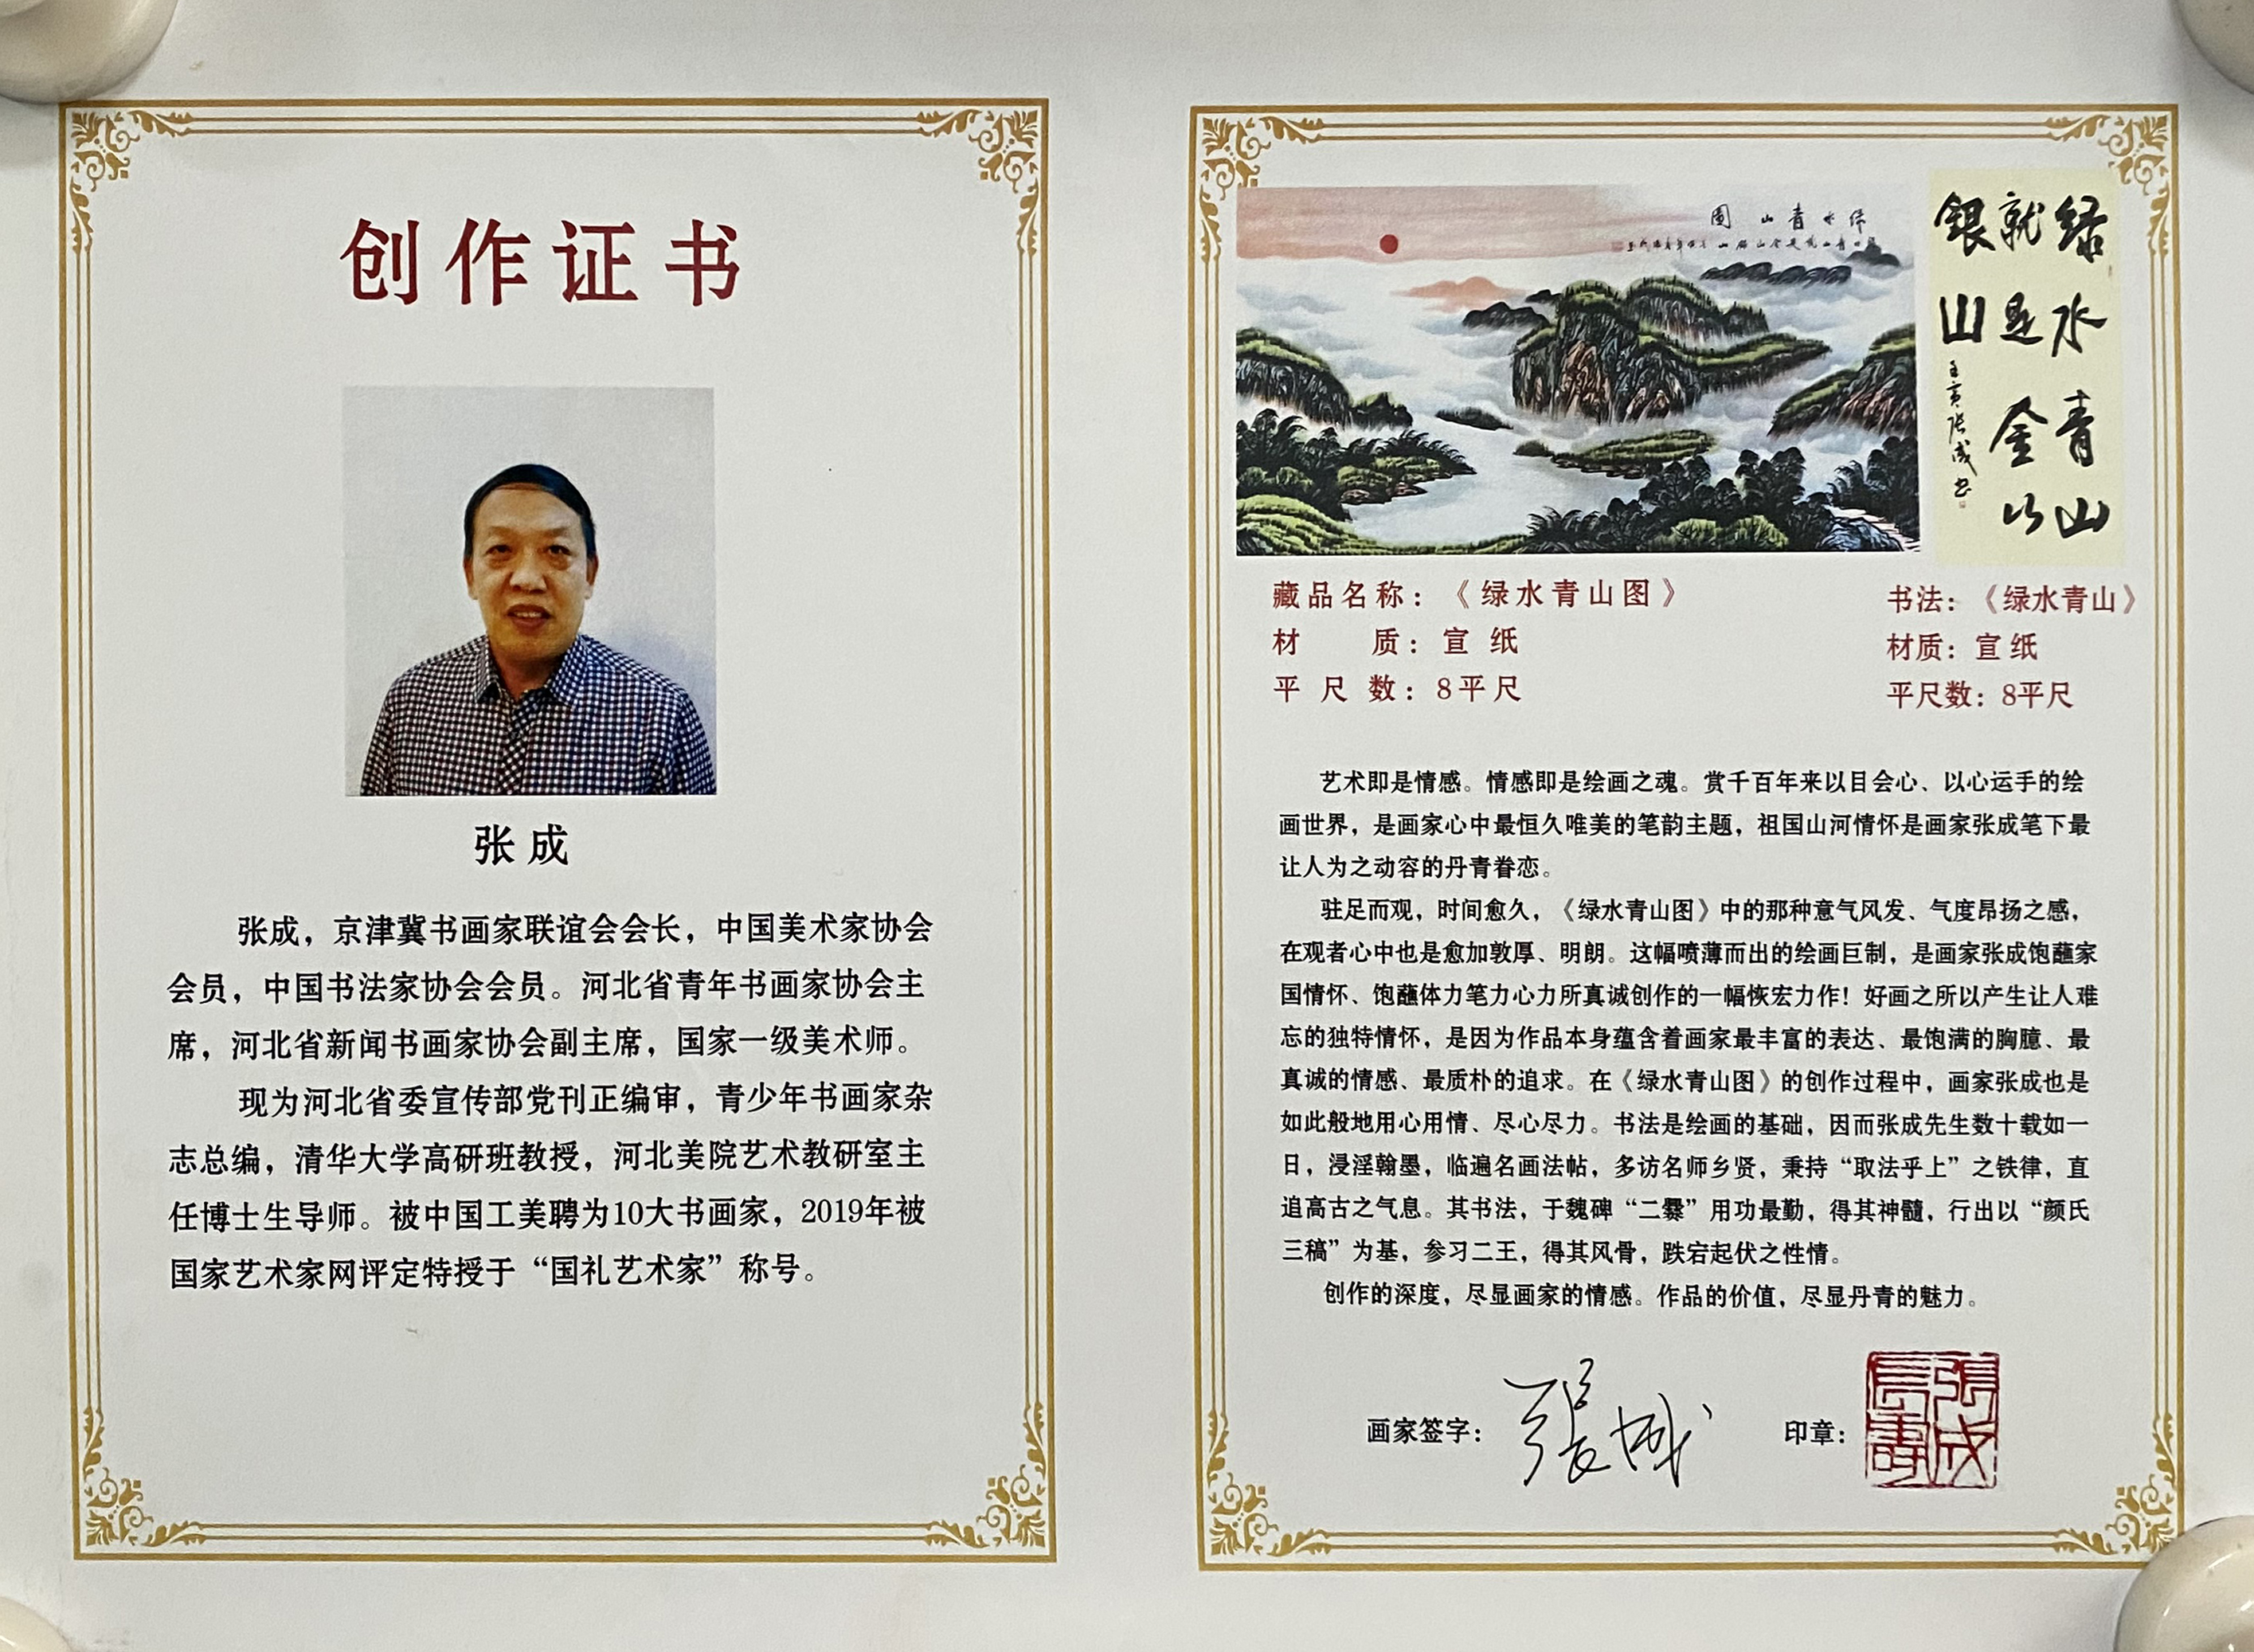 创作证书
张成
张成，京津冀书画家联谊会会长，中国美术家协会
会员，中国书法家协会会员。河北省青年书画家协会主
席，河北省新闻书画家协会副主席，国家一级美术师。
现为河北省委宣传部党刊正编审，青少年书画家杂
志总编，清华大学高研班教授，河北美院艺术教研室主
任博士生导师。被中国工美聘为10大书画家，2019年被
国家艺术家网评定特授于“国礼艺术家”称号。
绿水青山图
绿水青山
就是金山
銀山
壬寅张成书
藏品名称：《绿水青山图》
材质：宣纸
平尺数：8平尺
书法：《绿水青山》
材质：宣纸
平尺数：8平尺
艺术即是情感。情感即是绘画之魂。赏千百年来以目会心、以心运手的绘
画世界，是画家心中最恒久唯美的笔韵主题，祖国山河情怀是画家张成笔下最
让人为之动容的丹青眷恋。
驻足而观，时间愈久，《绿水青山图》中的那种意气风发、气度昂扬之感，
在观者心中也是愈加敦厚、明朗。这幅喷薄而出的绘画巨制，是画家张成饱蘸家
国情怀、饱蘸体力笔力心力所真诚创作的一幅恢宏力作！好画之所以产生让人难
忘的独特情怀，是因为作品本身蕴含着画家最丰富的表达、最饱满的胸臆、最
真诚的情感、最质朴的追求。在《绿水青山图》的创作过程中，画家张成也是
如此般地用心用情、尽心尽力。书法是绘画的基础，因而张成先生数十载如一
日，浸淫翰墨，临遍名画法帖，多访名师乡贤，秉持“取法乎上”之铁律，直
追高古之气息。其书法，于魏碑“二爨”用功最勤，得其神髓，行出以“颜氏
三稿”为基，参习二王，得其风骨，跌宕起伏之性情。
创作的深度，尽显画家的情感。作品的价值，尽显丹青的魅力。
画家签字：張成
印章：
張成